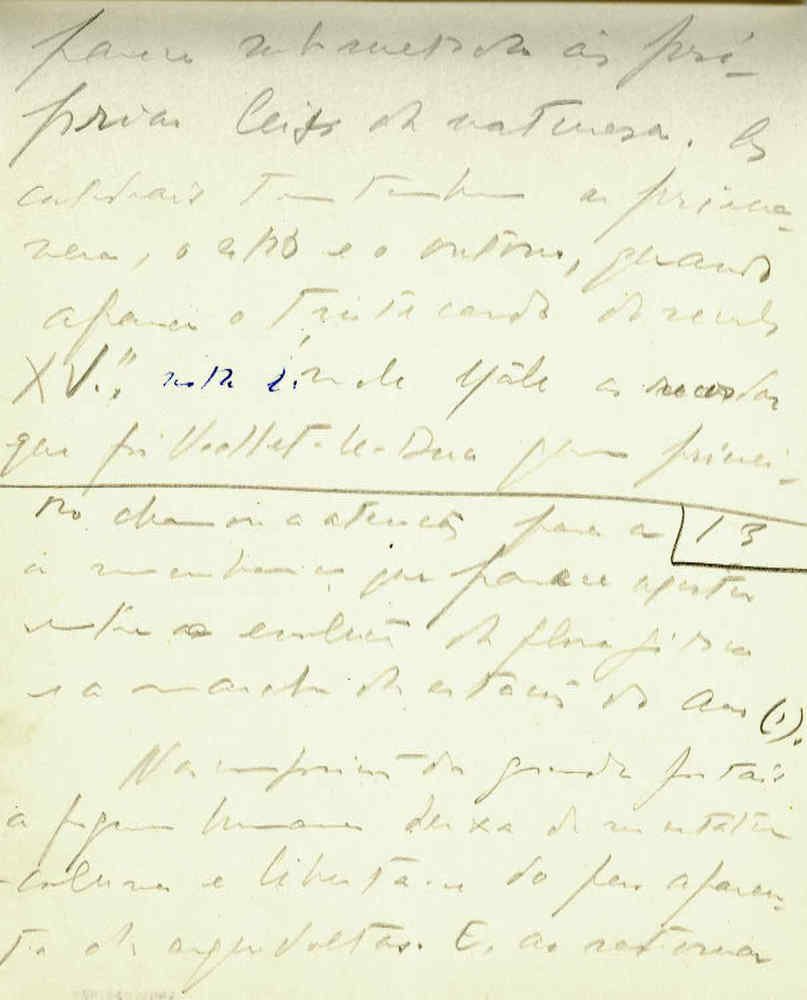 parece submetida ás pró-
prias leis da natureza. As
catedrais tem tambem a prima-
vera, o estio e o outono, quando
aparece o triste cardo do seculo
XV.", nota E. male Mâle ao recordar
que foi Viollet-le-Duc quem primei-
ro chamou a atenção para a 13
a semelhança que parece existir
entre a evolução da flora gótica
e a marcha da estação do ano (1).
Na composição dos grandes portais
a figura humana deixa de ser estátua
-coluna e liberta-se do peso aparen-
te da arquivoltas. E, ao retomar